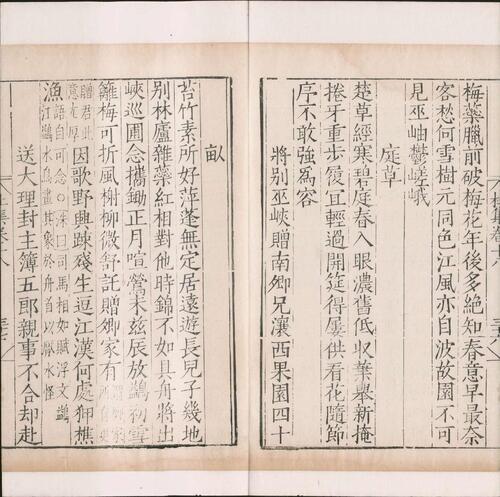 梅蘂臘前破梅花年後多絕知春意早最柰
客愁何雪樹元同色江風亦自波故園不可
見巫岫鬱嵯峨
庭草
楚草經寒碧庭春入眼濃舊低収葉舉新掩
捲牙重步履宜輕過開筵得屢供看花隨節
序不敢強爲容
將别巫峽贈南卿兄瀼西果園四十
畝
苔竹素所好萍蓬無定居遠遊長兒子幾地
别林廬雜蘂紅相對他時錦不如具舟將出
峽巡圃念攜鋤正月喧鶯末玆辰放鷁初雪
籬梅可折風榭柳微舒託贈卿家有
因歌野興踈殘生逗江漢何處狎樵
漁
送大理封主簿五郎親事不合却赴